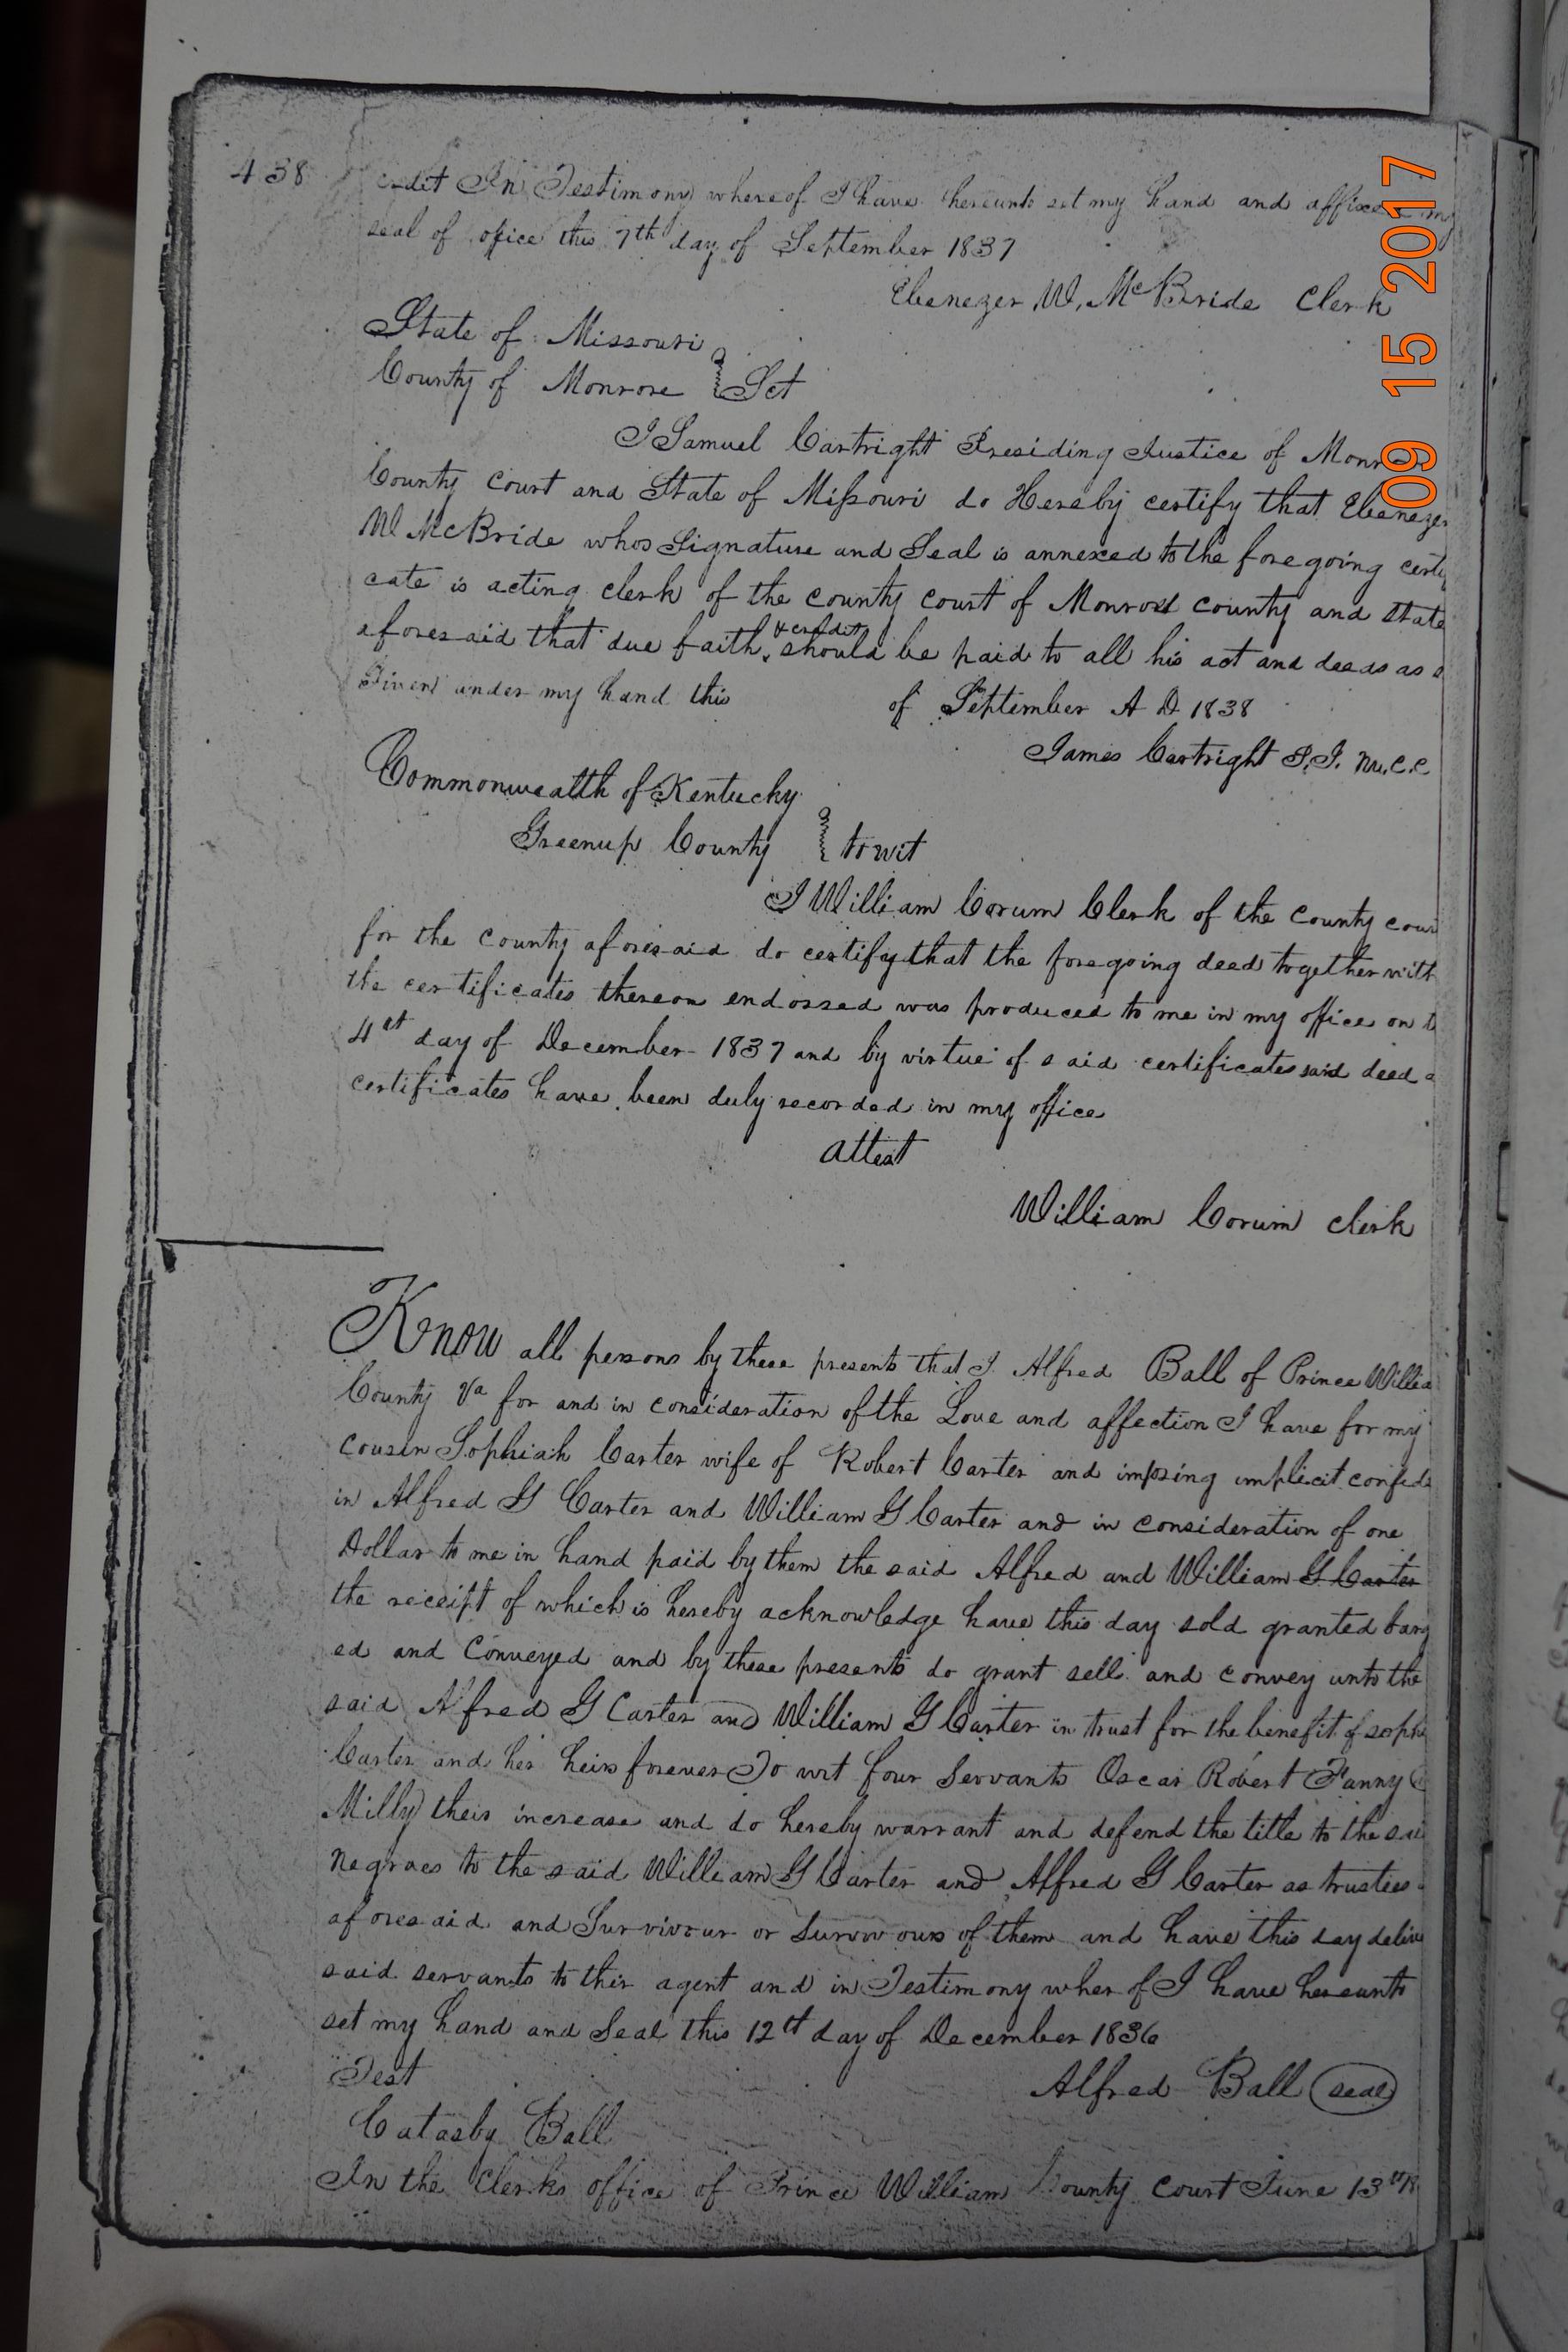 438
credit In Testimony whereof I have hereunto set my hand and affixed my
seal of office this 7th day of September 1837
Ebenezer W. McBride Clerk
State of Missouri
County of Monroe } Sct
I Samuel Cartright Presiding Justice of Monr
County Court and State of Missouri do Hereby certify that Ebenezer
W McBride whos Signature and Seal is annexed to the foregoing certi
cate is acting clerk of the county court of Monroe county and State
aforesaid that due faith & credit should be paid to all his act and deeds as
Given under my hand this of September A D 1838
James Cartright P.J. M.C.C
Commonwealth of Kentucky
Greenup County } to wit
I William Corum Clerk of the County cour
for the county aforesaid do certify that the foregoing deed together with
the certificates thereon endossed was produced to me in my office on t
4st day of December 1837 and by virtue of said certificates said deed a
certificates have been duly recorded in my office
Attest
William Corum clerk
Know all persons by these presents that I Alfred Ball of Prince Willia
County Va for and in consideration of the Love and affection I have for my
cousin Sophiah Carter wife of Robert Carter and imposing implicit confide
in Alfred G Carter and William G Carter and in consideration of one
Dollar to me in hand paid by them the said Alfred and William G Carter
the receipt of which is hereby acknowledge have this day sold granted barg
ed and Conveyed and by these presents do grant sell and convey unto the
said Alfred G Carter and William G Carter in trust for the benefit of soph
Carter and her heirs forever To wit four Servants Oscar Robert Fanny
Milly their increase and do hereby warrant and defend the title to the sai
negroes to the said William G Carter and Alfred G Carter as trustees
aforesaid and Survivour or Survivours of them and have this day deliv
said servants to thir agent and in Testimony wher of I have hereunto
set my hand and Seal this 12th day of December 1836
Test Alfred Ball seal
Catasby Ball
In the Clerks office of Prince William County Court June 13th
09 15 2017